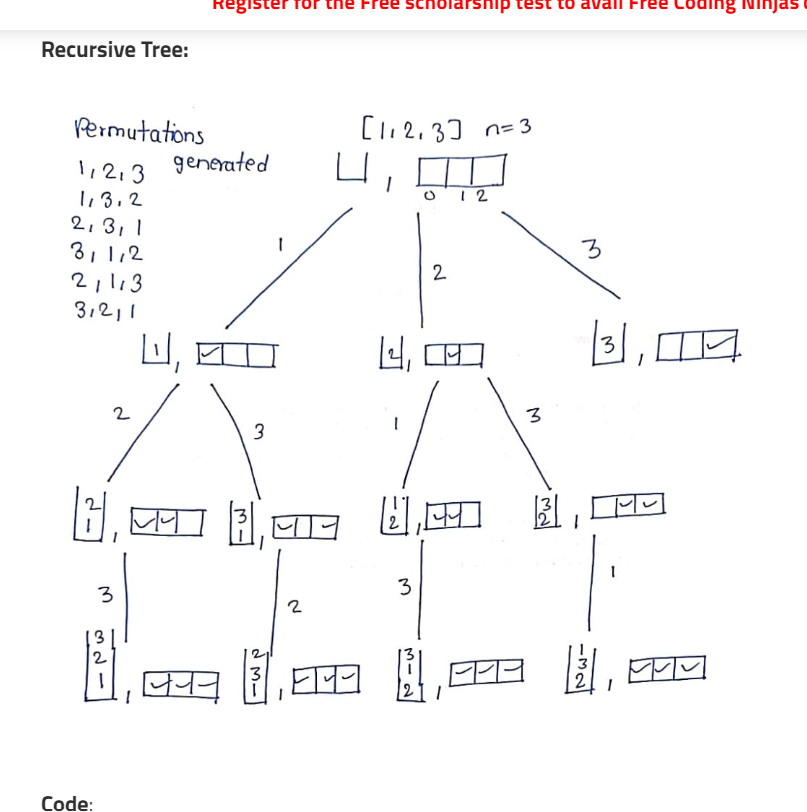 Register for the Free scholarship test to avail Free Coding Ninjas c
Recursive Tree:
Permutations generated
[1, 2, 3] n=3
1, 2, 3
1, 3, 2
2, 3, 1
3, 1, 2
2, 1, 3
3, 2, 1
,
0 1 2
1
2
3
1 ,
2 ,
3 ,
2
3
1
3
2
1 ,
3
1 ,
1
2 ,
3
2 ,
3
2
3
1
3
2
1 ,
2
3
1 ,
3
1
2 ,
1
3
2 ,
Code: